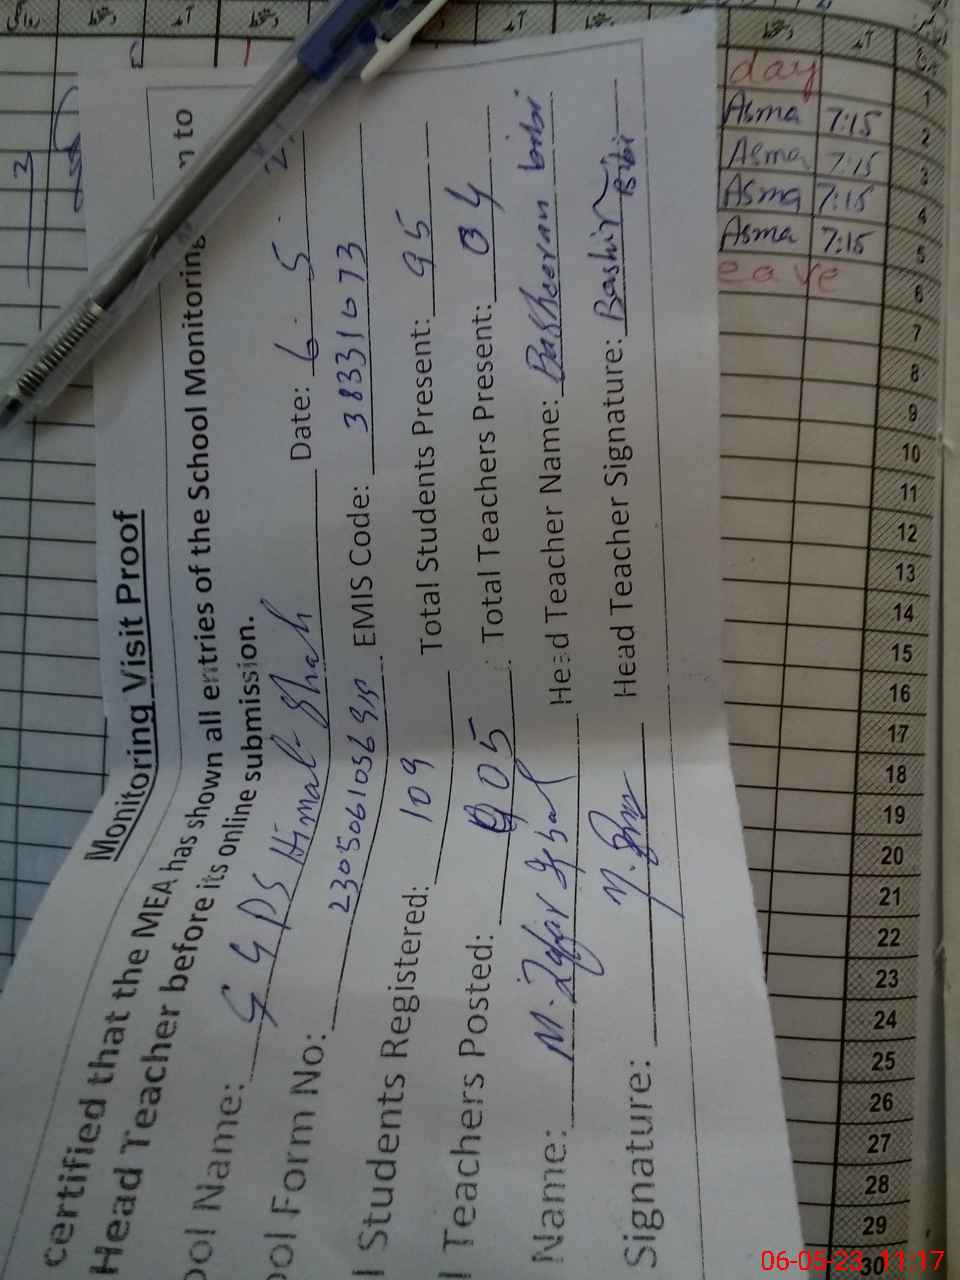 Monitoring Visit Proof
certified that the MEA has shown all entries of the School Monitoring to
Head Teacher before its online submission.
ool Name: GGPS Himat Shah Date: 6. 5.
ool Form No: EMIS Code: 38331073
l Students Registered: 109 Total Students Present: 95
l Teachers Posted: 05 Total Teachers Present: 04
Name: M. Zafar Iqbal Head Teacher Name: Basheeran bibi
Signature: Head Teacher Signature: Bashir Bibi
day
Asma 7:15
Asma 7:15
Asma 7:15
Asma 7:15
eave
1
2
3
4
5
6
7
8
9
10
11
12
13
14
15
16
17
18
19
20
21
22
23
24
25
26
27
28
29
30
06-05-23 11:17